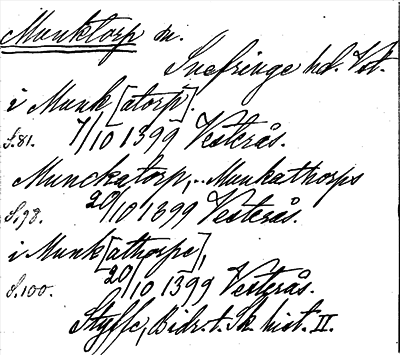 Munktorp sn.
Snefringe hd. Vst.
i Munk[atorp].
S.81. 7/10 1399 Vesterås.
Munckatorp, .. Munkathorps
S.98. 20/10 1399 Vesterås.
i Munk[athorpe],
S.100. 20/10 1399 Vesterås.
Styffe, Bidr. t. Sk. hist. II.